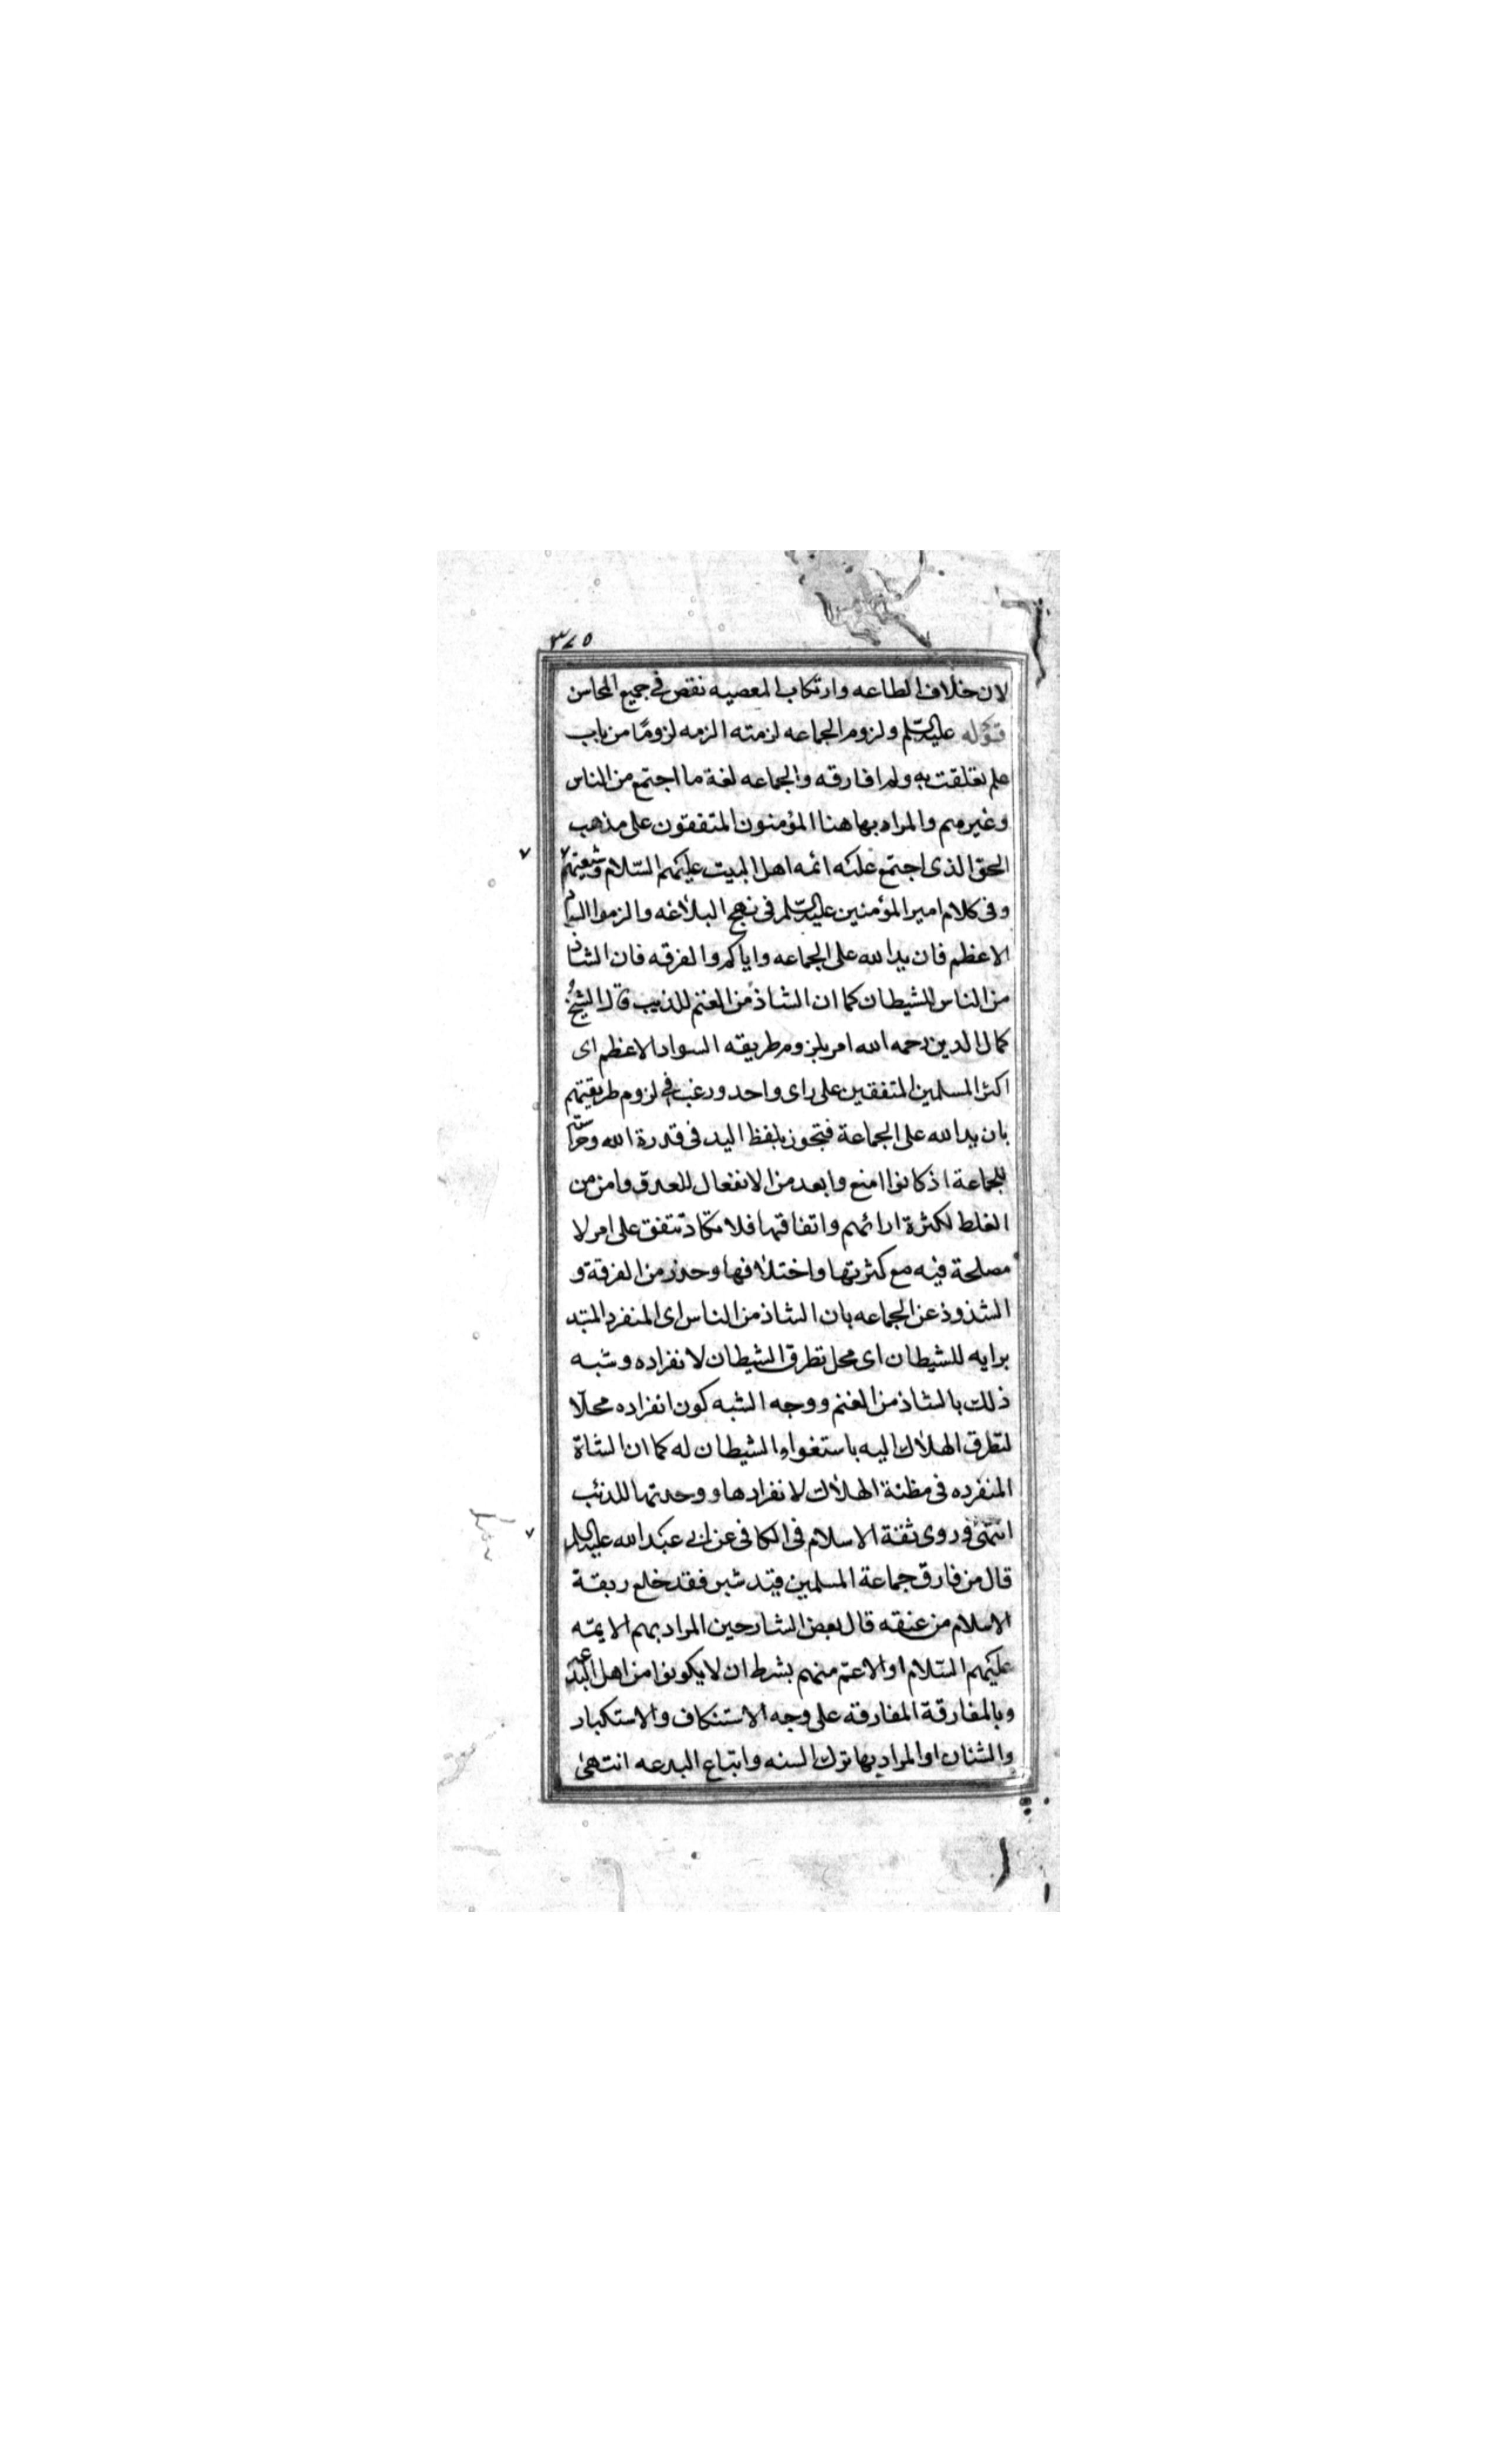 ٣٧٥
لان خلاف الطاعه وارتكاب المعصيه نقص فى جميع المحاسن
قوله عليه السلم ولزوم الجماعه لزمته الزمه لزومًا من باب
علم تعلقت به ولم افارقه والجماعه لغة ما اجتمع من الناس
وغيرهم والمراد بها هنا المؤمنون المتفقون على مذهب
الحق الذى اجتمع عليه ائمه اهل البيت عليهم السّلام وشيعتهم
وفى كلام امير المؤمنين عليه السلم فى نهج البلاغه والزموا السواد
الاعظم فان يد الله على الجماعه واياكم والفرقه فان الشاذ
من الناس للشيطان كما ان الشاذ من الغنم للذيب قال الشيخ
كمال الدين رحمه الله امر بلزوم طريقه السواد الاعظم اى
اكثر المسلمين المتفقين على راى واحد ورغب فى لزوم طريقتهم
بان يد الله على الجماعة فتجوز بلفظ اليد فى قدرة الله وحراسته
للجماعة اذ كانوا امنع وابعد من الانفعال للعدو وامن من
الغلط لكثرة ارائهم واتفاقها فلا تكاد تتفق على امر لا
مصلحة فيه مع كثرتها واختلافها وحذر من الفرقة و
الشذوذ عن الجماعه بان الشاذ من الناس اى المنفرد المستبد
برايه للشيطان اى محل تطرق الشيطان لانفراده وشبه
ذلك بالشاذ من الغنم ووجه الشبه كون انفراده محلّا
لتطرق الهلاك اليه باستغواء الشيطان له كما ان الشاة
المنفرده فى مظنة الهلاك لانفرادها ووحدتها للذئب
انتهى وروى ثقة الاسلام فى الكافى عن ابى عبد الله عليه السلم
قال من فارق جماعة المسلمين قيد شبر فقد خلع ربقة
الاسلام من عنقه قال بعض الشارحين المراد بهم الايمّه
عليهم السّلام او الاعم منهم بشرط ان لا يكونوا من اهل البدعه
وبالمفارقة المفارقه على وجه الاستنكاف والاستكبار
والشنان او المراد بها ترك السنه واتباع البدعه انتهى